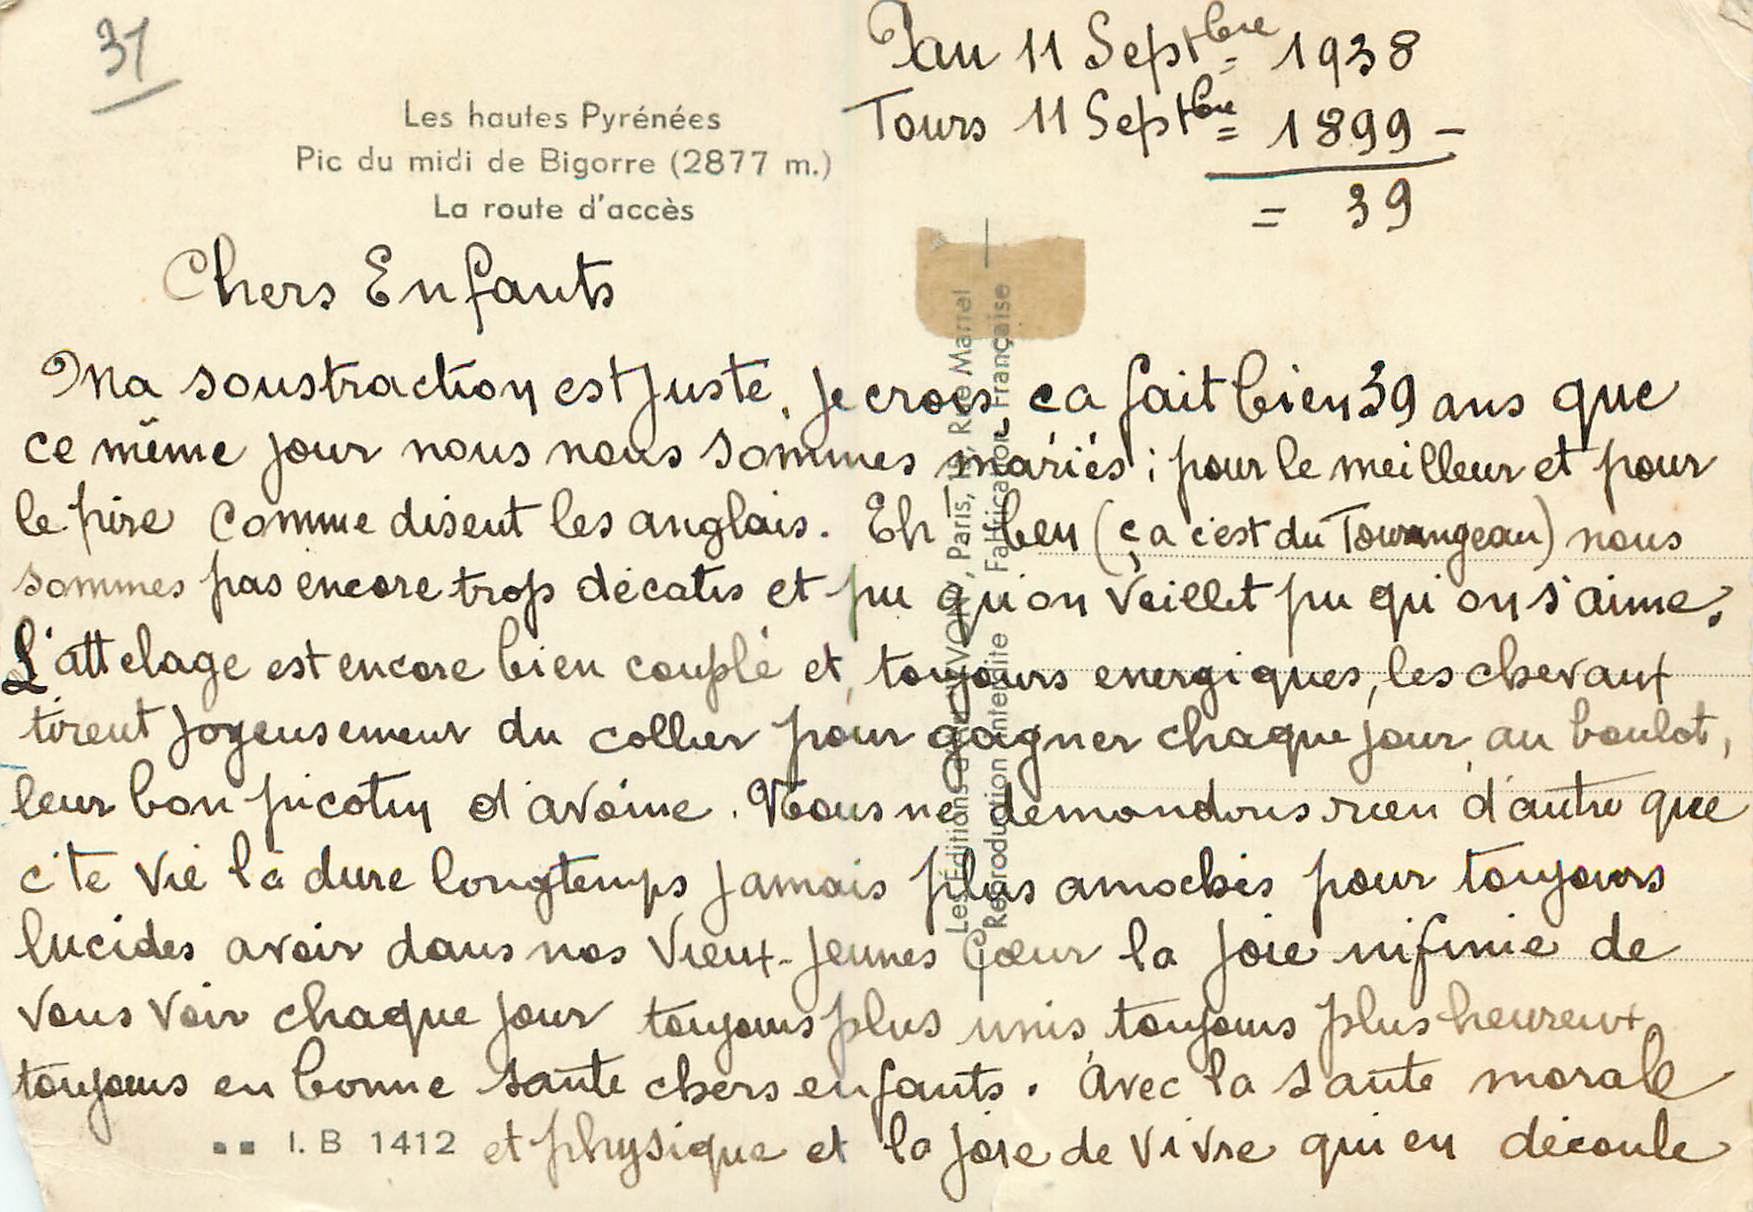 31
Pau 11 Septbre = 1938
Tours 11 Septbre = 1899 -
= 39
Les hautes Pyrénées
Pic du midi de Bigorre (2877 m.)
La route d'accès
Chers Enfants
Ma soustraction est juste, je crois ça fait bien 39 ans que
ce même jour nous nous sommes mariés ; pour le meilleur et pour
le pire comme disent les anglais. Eh ben (ça c'est du Tourangeau) nous
sommes pas encore trop décatis et pu qu'on veillet pu qu'on s'aime.
L'attelage est encore bien couplé et, toujours energiques, les chevaux
tirent joyeusement du collier pour gagner chaque jour, au boulot,
leur bon picotin d'avoine. Nous ne demandons rien d'autre que
c'te vie là dure longtemps jamais plus amochés pour toujours
lucides avoir dans nos vieux-jeunes Cœur la joie infinie de
vous voir chaque jour toujours plus unis, toujours plus heureux
toujours en bonne santé chers enfants. Avec la santé morale
I.B 1412 et physique et la joie de vivre qui en découle
Les Éditions d'Art YVON, Paris, Rue Martel
Reproduction interdite Fabrication Française